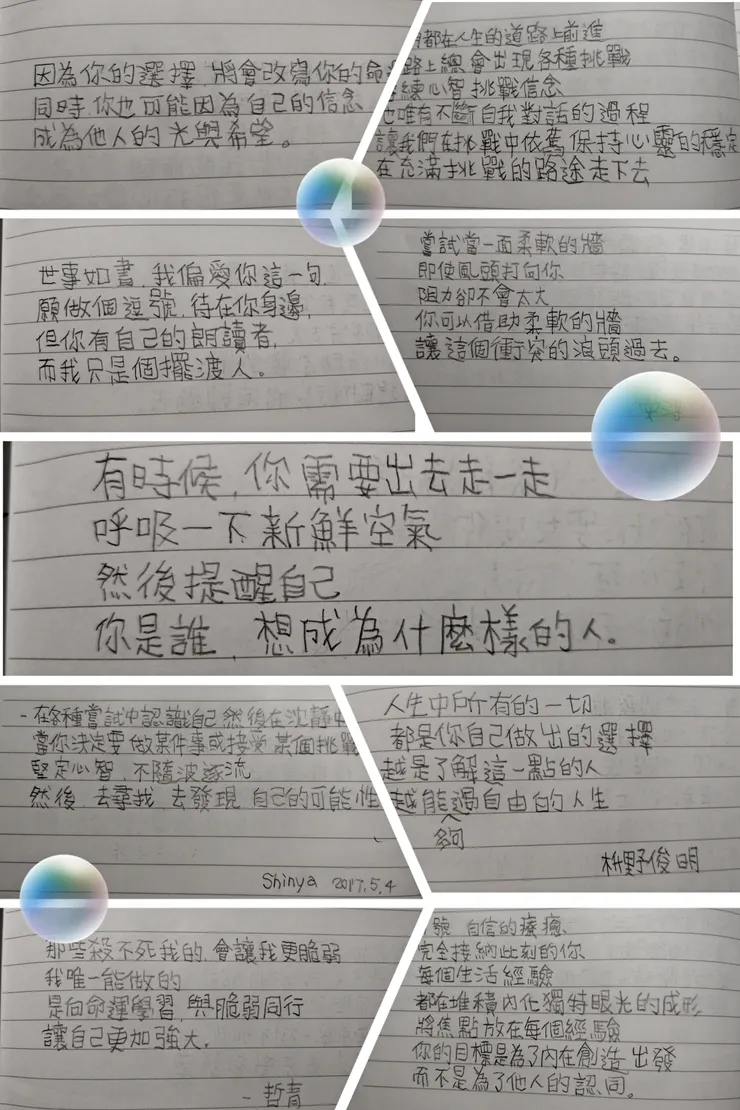 因為你的選擇,將會改寫你的命
同時,你也可能因為自己的信念
成為他人的光與希望。
都在人生的道路上前進
路上總會出現各種挑戰
練心智 挑戰信念
也唯有不斷自我對話的過程
讓我們在挑戰中依舊保持心靈的穩定
在充滿挑戰的路途走下去
世事如書,我偏愛你這一句,
願做個逗號,待在你身邊,
但你有自己的朗讀者,
而我只是個擺渡人。
嘗試當一面柔軟的牆
即使風頭打向你
阻力卻不會太大
你可以借助柔軟的牆
讓這個衝突的浪頭過去。
有時候,你需要出去走一走
呼吸一下新鮮空氣
然後提醒自己
你是誰,想成為什麼樣的人。
- 在各種嘗試中認識自己 然後在沈靜中
當你決定要做某件事或接受某個挑戰
堅定心智,不隨波逐流
然後,去尋找,去發現,自己的可能性
Shinya 2017.5.4
人生中所有的一切
都是你自己做出的選擇
越是了解這一點的人
越能夠過自由的人生
枡野俊明
那些殺不死我的,會讓我更脆弱
我唯一能做的
是向命運學習,與脆弱同行
讓自己更加強大.
- 哲青
號 自信的療癒
完全接納此刻的你
每個生活經驗
都在堆積內化獨特眼光的成形
將焦點放在每個經驗
你的目標是為了內在創造出發
而不是為了他人的認同。